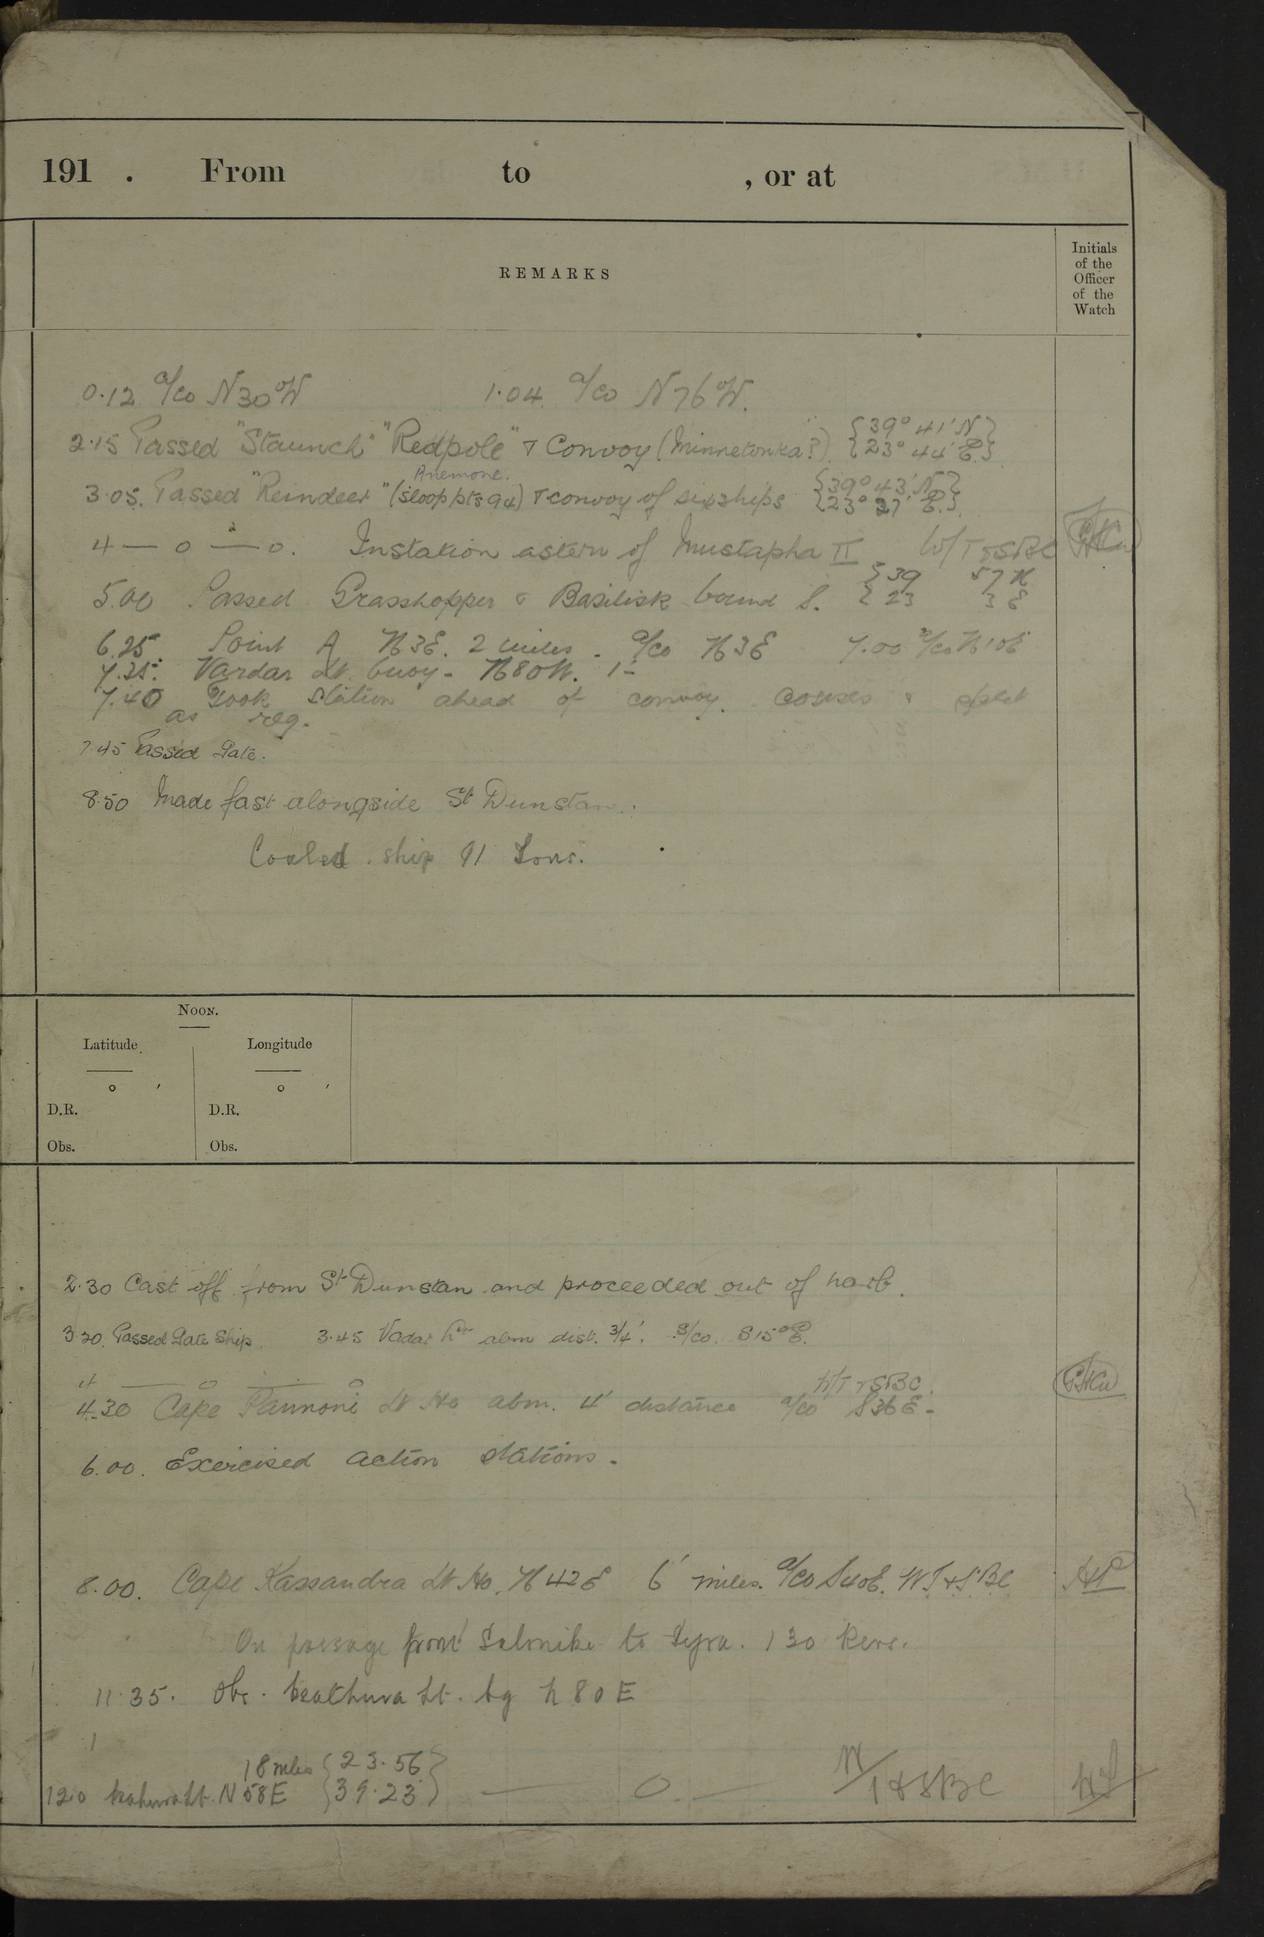 191 . From to , or at
REMARKS
Initials of the Officer of the Watch
0.12 a/co N30°W 1.04 a/co N76°W.
2.15 Passed "Staunch" "Redpole" & Convoy (Minnetonka?) {39° 41' N} {23° 44' E}
Anemone.
3.05. Passed "Reindeer" (sloop pts 94) & convoy of six ships {39° 43' N} {23° 37' E}
4 — o — o. In station astern of Mustapha II W/T & SBC
5.00 Passed Grasshopper & Basilisk bound S. {39 57 N {23 3 E
6.25 Point A N3E. 2 miles. a/co N3E 7.00 a/co N10E
7.25. Vardar Lt. buoy - N80W. 1'-
7.40 Took station ahead of convoy. Courses & speed
as req.
7.45 Passed Gate.
8.50 Made fast alongside St Dunstan.
Coaled ship 91 Tons.
NOON.
Latitude Longitude
° ' ° '
D.R. D.R.
Obs. Obs.
2.30 Cast off from St Dunstan and proceeded out of harb.
3.20. Passed Gate Ship. 3.45 Vadar Lt abm dist. 3/4'. a/co. S15°E.
4 — o — o W/T & SBC.
4.30 Cape Pannoni Lt Ho abm. 4' distance a/co S36E-
6.00. Exercised action stations.
8.00. Cape Kassandra Lt Ho. N42E 6' miles. a/co S40E. WT & SBC
On passage from Salonika to Syra. 130 Revs.
11.35. Obs. Lt. bg N80E
18 miles {23.56}
12.0 Lt. N58E {39.23} — o. — W/T & SBC